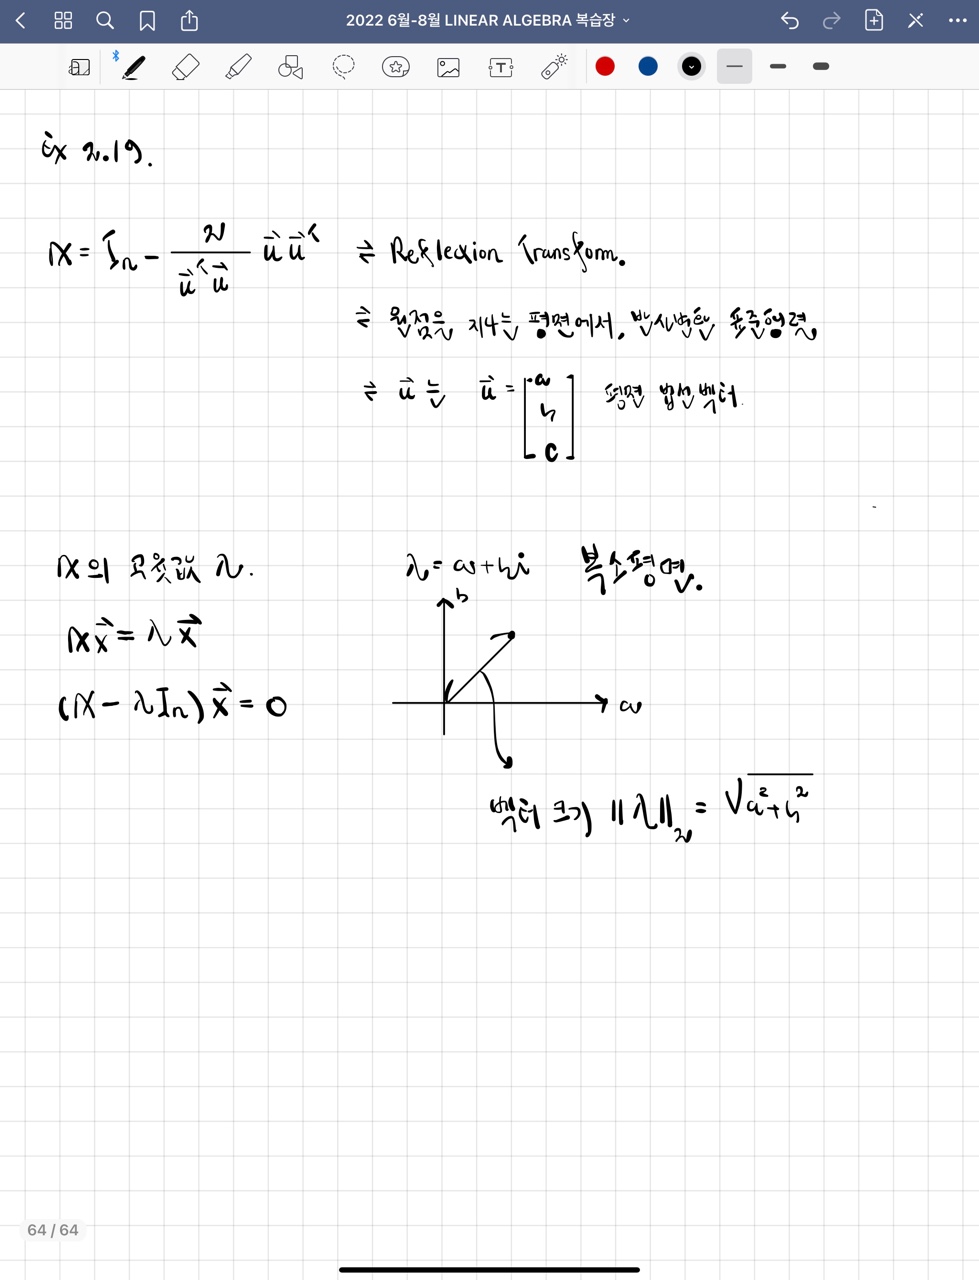 2022 6월-8월 LINEAR ALGEBRA 복습장
Ex 2.19.
A = Iₙ - 2/(u⃗ᵀu⃗) u⃗u⃗ᵀ ⇌ Reflexion Transform.
⇌ 원점을 지나는 평면에서, 반사변환 표준행렬
⇌ u⃗ 는 u⃗ = [a b c] 평면 법선벡터.
A의 고윳값 λ. λ = a+bi 복소평면.
b
Ax⃗ = λx⃗
(A - λIₙ)x⃗ = 0
a
벡터 크기 ||λ||₂ = √(a²+b²)
64 / 64